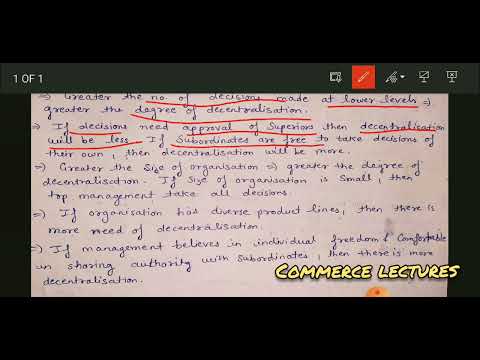 1 OF 1
⇒ Greater the no. of decisions made at lower levels ⇒
greater the degree of decentralisation.
⇒ If decisions need approval of Superiors then decentralisation
will be less. If Subordinates are free to take decisions of
their own, then decentralisation will be more.
⇒ Greater the Size of organisation ⇒ greater the degree of
decentralisation. If Size of organisation is small, then
top management take all decisions.
⇒ If organisation has diverse product lines, then there is
more need of decentralisation.
⇒ If management believes in individual freedom & Comfortable
in sharing authority with subordinates, then there is more
decentralisation.
COMMERCE LECTURES